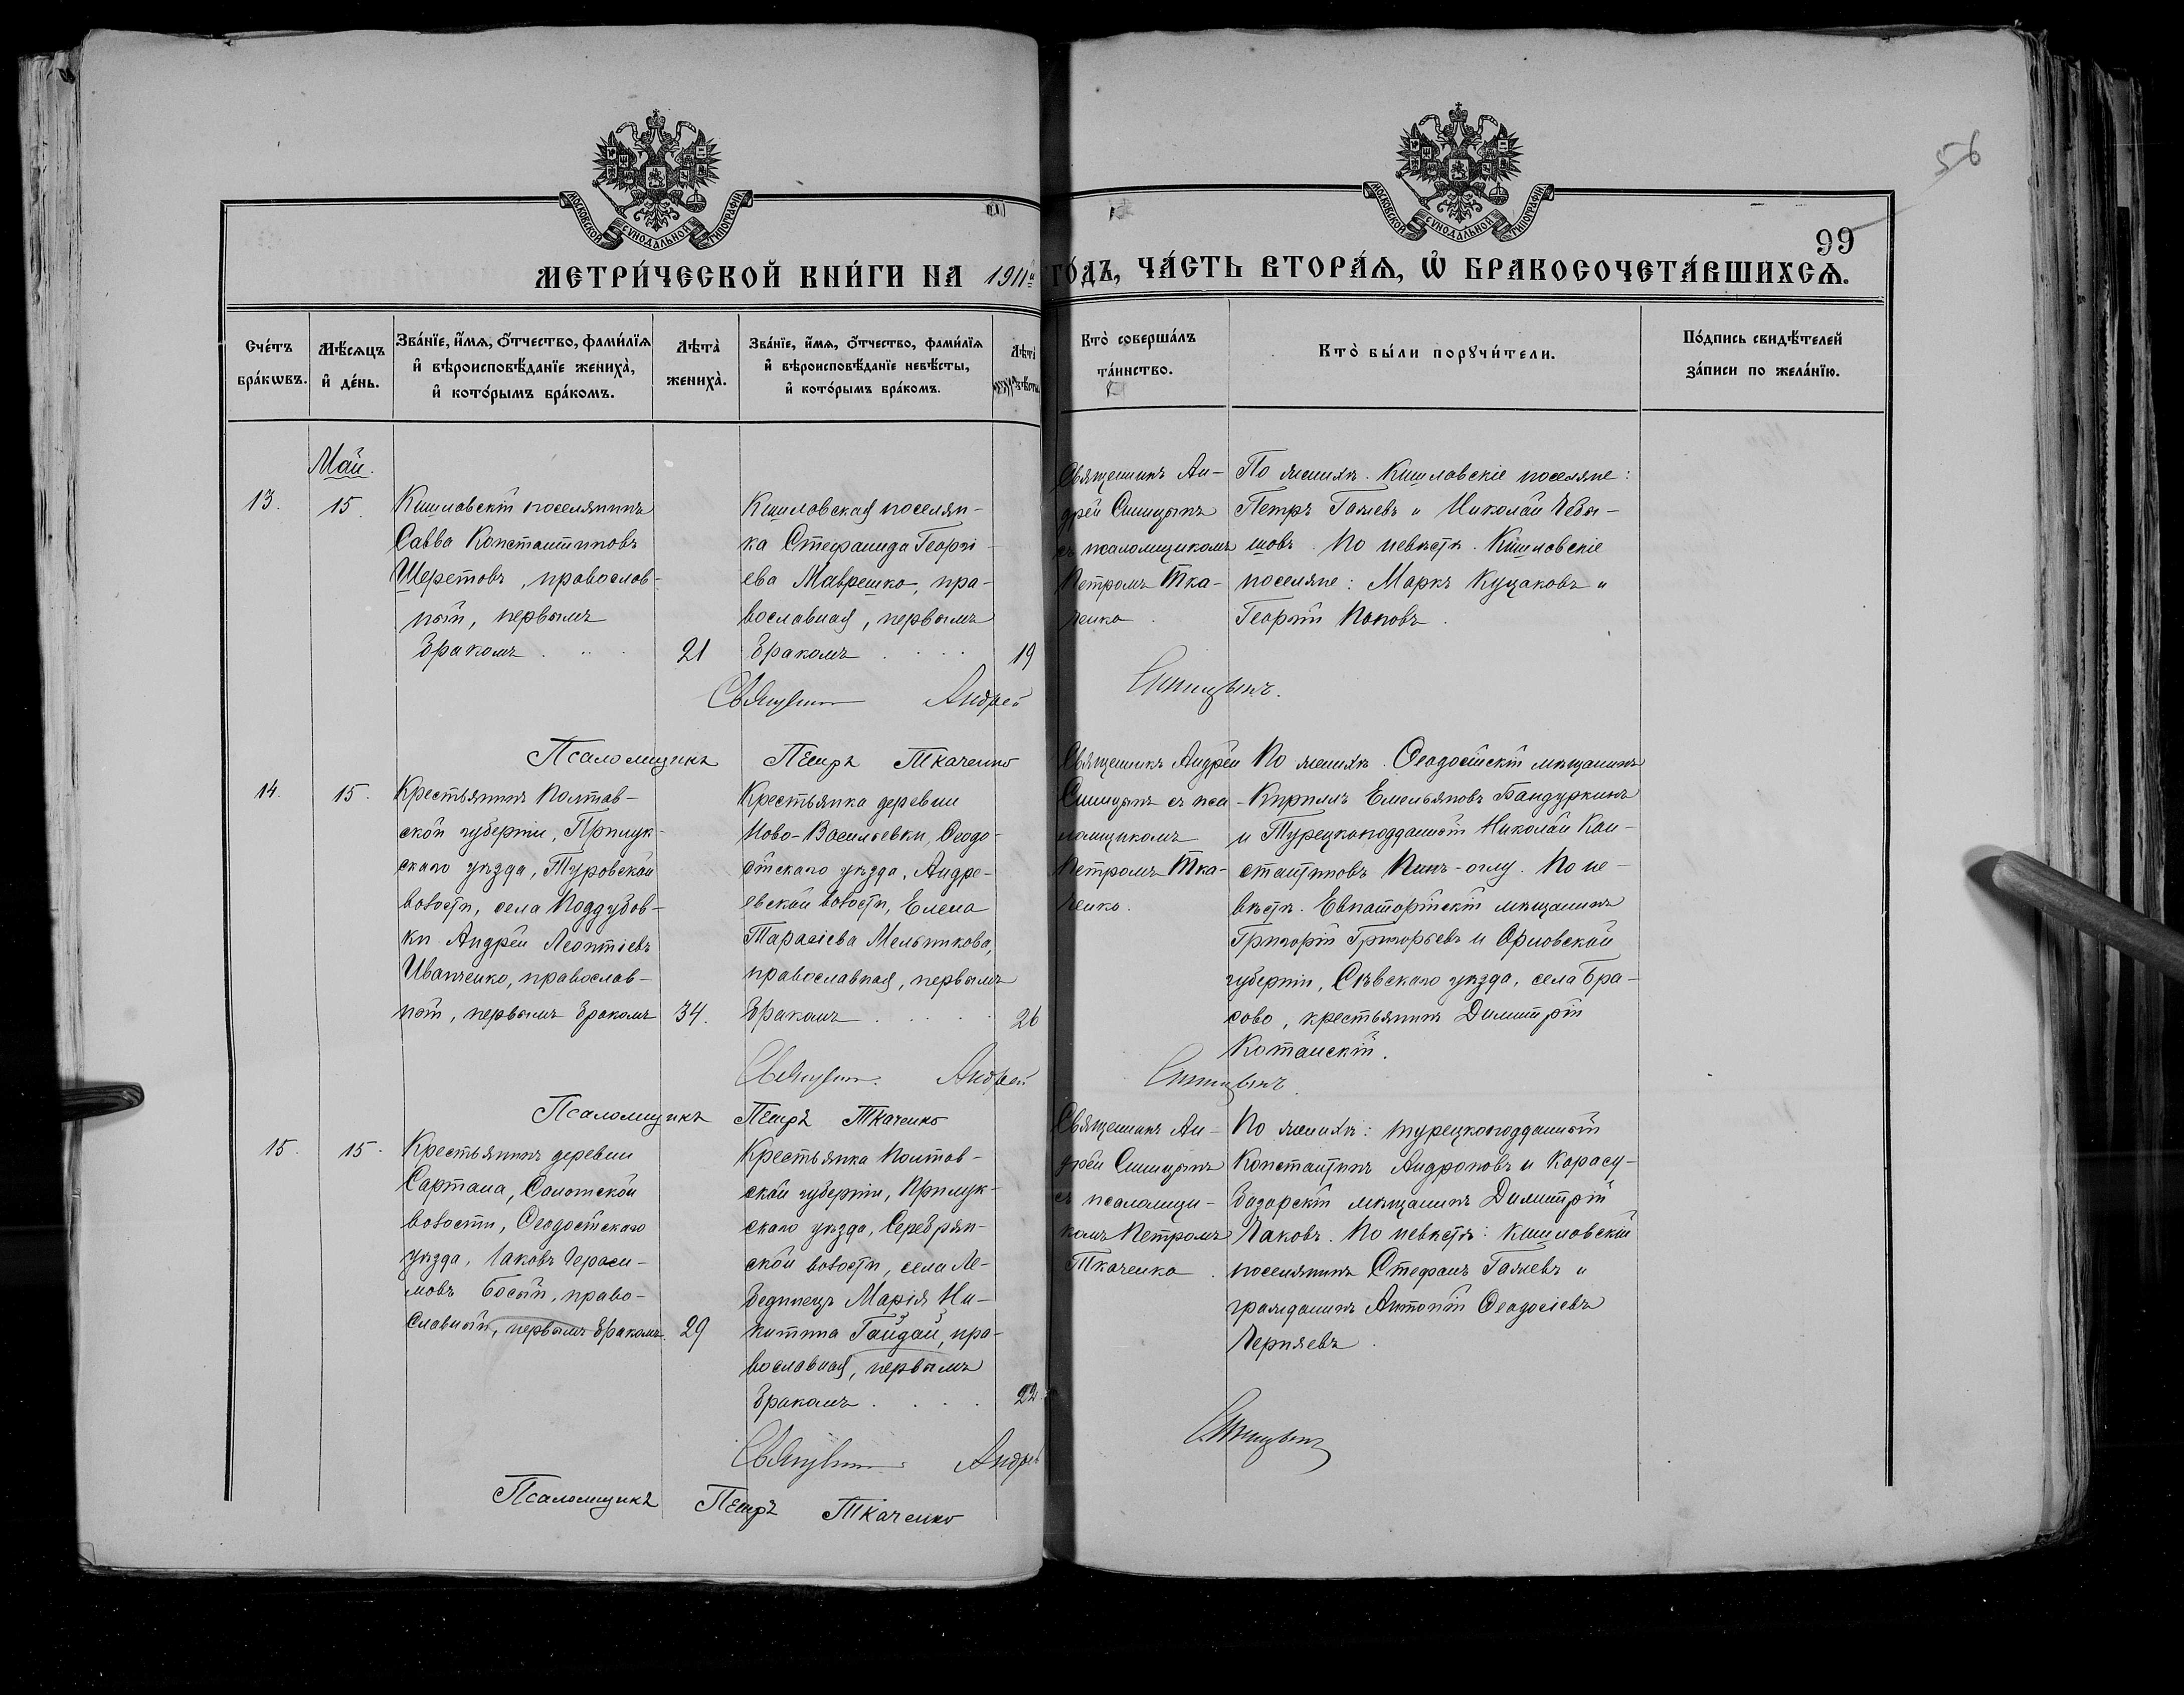 56
99
МОСКОВСКОЙ СѴНОДАЛЬНОЙ ТИПОГРАФІИ
МОСКОВСКОЙ СѴНОДАЛЬНОЙ ТИПОГРАФІИ
МЕТРИ́ЧЕСКОЙ КНИ́ГИ НА 1911й ГО́ДЪ, ЧА́СТЬ ВТОРА́Ѧ, Ѽ БРАКОСОЧЕТА́ВШИХСѦ.
Сче́тъ бра́кѡвъ.
Мѣ́сѧцъ и҆ де́нь.
Зва́нїе, и҆́мѧ, ѻ҆́тчество, фами́лїѧ и҆ вѣроисповѣ́данїе жениха̀, и҆ кото́рымъ бра́комъ.
Лѣта̀ жениха̀.
Зва́нїе, и҆́мѧ, ѻ҆́тчество, фами́лїѧ и҆ вѣроисповѣ́данїе невѣ́сты, и҆ кото́рымъ бра́комъ.
Лѣта̀ невѣ́сты.
Кто̀ соверша́лъ та́инство.
Кто̀ бы́ли порꙋчи́тели.
По́дпись свидѣ́телей за́писи по жела́нїю.
Май.
13.
15.
Кишловскій поселянинъ
Савва Константиновъ
Шеретовъ, православ-
ный, первымъ
бракомъ . . .
21
Кишловская поселян-
ка Стефанида Георгі-
ева Маврешко, пра-
вославная, первымъ
бракомъ . . . .
19
Священникъ Ан-
дрей Синицынъ
съ псаломщикомъ
Петромъ Тка-
ченко .
По женихѣ. Кишловскіе поселяне:
Петръ Галяевъ и Николай Чебы-
шовъ. По невѣстѣ. Кишловскіе
поселяне: Маркъ Куцаковъ и
Георгій Поповъ .
Священникъ Андрей Синицынъ.
Псаломщикъ Петръ Ткаченко
14.
15.
Крестьянинъ Полтав-
ской губерніи, Прилук-
скаго уѣзда, Туровской
волости, села Поддубов-
ки Андрей Леонтіевъ
Иванченко, православ-
ный, первымъ бракомъ
34.
Крестьянка деревни
Ново-Васильевки, Ѳеодо-
сійскаго уѣзда, Андре-
евской волости, Елена
Тарасіева Мельникова,
православная, первымъ
бракомъ . . . .
26
Священникъ Андрей
Синицынъ съ пса-
ломщикомъ
Петромъ Тка-
ченко.
По женихѣ. Ѳеодосійскій мѣщанинъ
Кириллъ Емельяновъ Бандуркинъ
и Турецкоподданный Николай Кон-
стантиновъ Пинъ-оглу. По не-
вѣстѣ. Евпаторійскій мѣщанинъ
Григорій Григорьевъ и Орловской
губерніи, Сѣвскаго уѣзда, села Бра-
сово, крестьянинъ Димитрій
Котанскій.
Священникъ Андрей Синицынъ
Псаломщикъ Петръ Ткаченко
15.
15.
Крестьянинъ деревни
Сартана, Салынской
волости, Ѳеодосійскаго
уѣзда, Іаковъ Гераси-
мовъ Босый, право-
славный, первымъ бракомъ.
29
Крестьянка Полтав-
ской губерніи, Прилук-
скаго уѣзда, Серебрян-
ской волости, села Ле-
бединецъ Марія Ни-
китина Гайдай, пра-
вославная, первымъ
бракомъ . . . .
22
Священникъ Ан-
дрей Синицынъ
съ псаломщи-
комъ Петромъ
Ткаченко .
По женихѣ: турецкоподданный
Константинъ Андроновъ и Карасу-
базарскій мѣщанинъ Димитрій
Чаковъ. По невѣстѣ: Кишловскій
поселянинъ Стефанъ Галяевъ и
гражданинъ Антоній Ѳеодосіевъ
Черняевъ .
Священникъ Андрей Синицынъ
Псаломщикъ Петръ Ткаченко